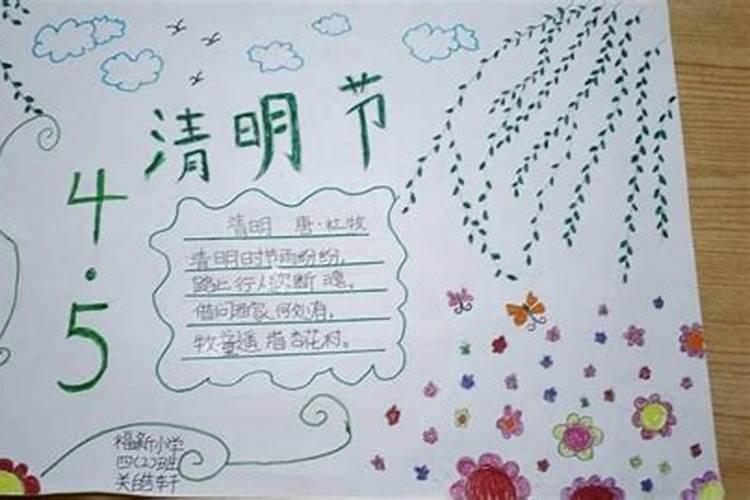 清明节
4.5
清明 唐·杜牧
清明时节雨纷纷,
路上行人欲断魂。
借问酒家何处有,
牧童遥指杏花村。
福新小学
四(2)班